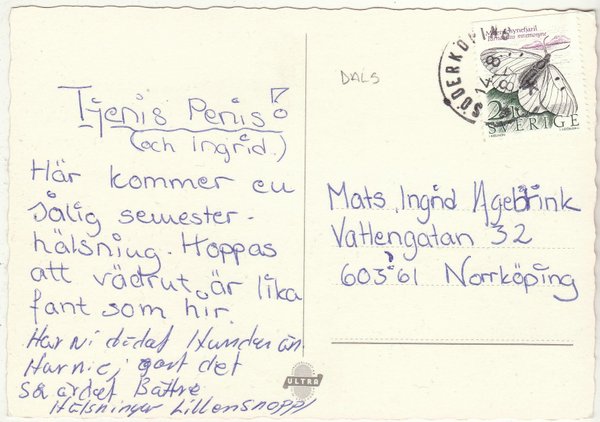 Tjenis Penis!
(och Ingrid.)
Här kommer en
sålig semester-
hälsning. Hoppas
att vädrut är lika
fant som hir.
Har ni dödat Hunden än
Har ni ej gort det
så ärdet Bättre
Hälsningar Lillensnopp
DALS
SÖDERKÖPING
14.-8.
Mnemosynefjäril
Parnassius mnemosyne
SVERIGE
Mats, Ingrid Agebrink
Vattengatan 32
603 61 Norrköping
ULTRA